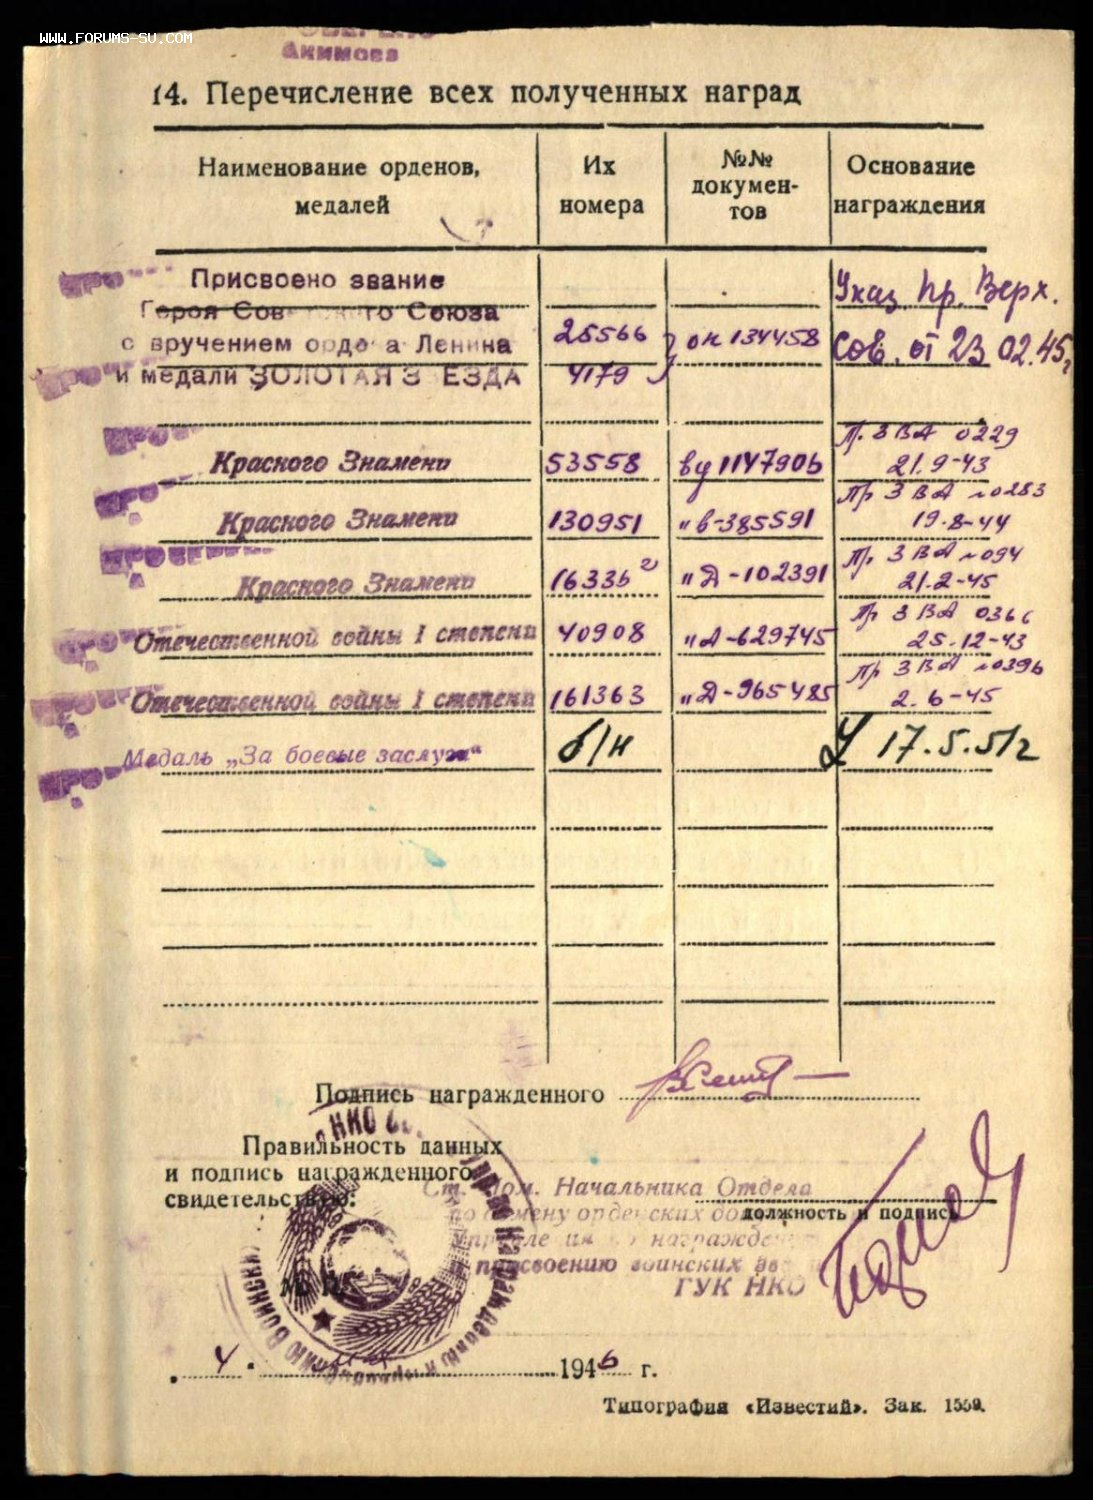 WWW.FORUMS-SU.COM
Акимова
14. Перечисление всех полученных наград
Наименование орденов, медалей
Их номера
№№ докумен-тов
Основание награждения
Присвоено звание
Указ Пр. Верх.
Героя Сов го Союза
с вручением орде а Ленина 25566 ок 134458 Сов. от 23.02.45г
и медали ЗОЛОТАЯ З ЕЗДА 4179
Красного Знамени 53558 21.9-43
Пр ЗВА 0229
Красного Знамени 130951 "в-385591 19.8-44
Пр ЗВА №0283
Красного Знамени "Д-102391 21.2-45
Пр ЗВА №094
Отечественной войны I степени 40908 "Д-629745 25.12-43
Пр ЗВА
Отечественной войны I степени 161363 "Д-965485 2.6-45
Пр ЗВА
Медаль „За боевые заслуги“ б/н У 17.5.51г
Подпись награжденного
Правильность данных
и подпись награжденного
свидетельствую:
Ст. Пом. Начальника Отдела
должность и подпись
по обмену орденских
награжде
и присвоению воинских зв
ГУК НКО
М. П.
НКО
4 1946 г.
Типография «Известий». Зак. 1559.